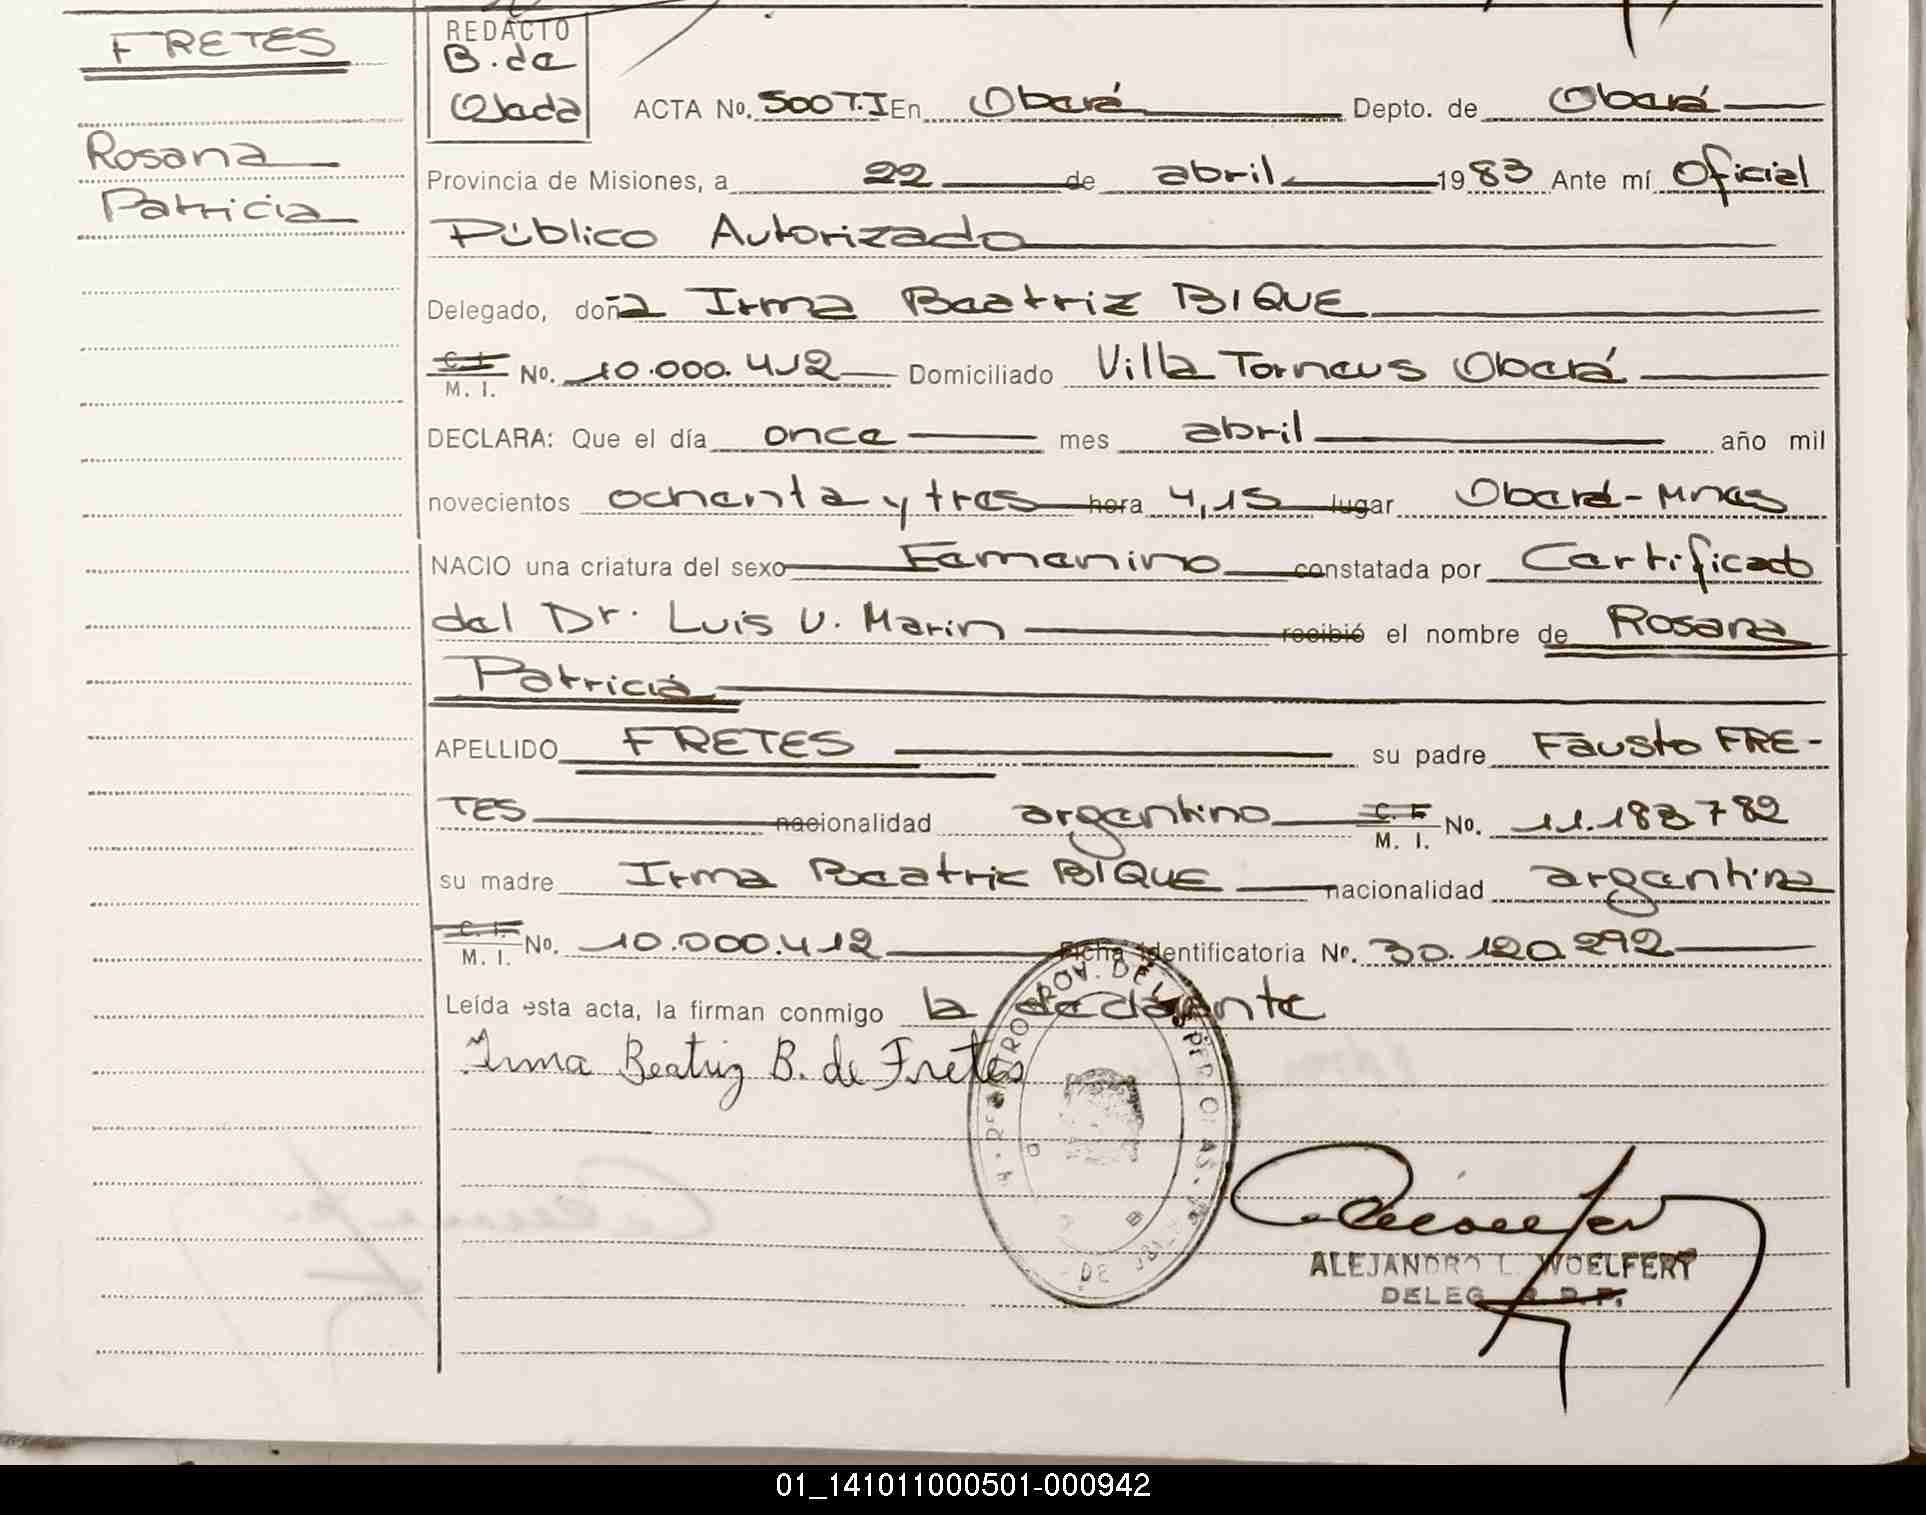 FRETES
Rosana
Patricia
REDACTO
B. de
Ojeda
ACTA No. 500 T.I En Oberá Depto. de Oberá
Provincia de Misiones, a 22 de abril 1983 Ante mí Oficial
Público Autorizado
Delegado, doña Irma Beatriz BIQUE
C. I. M. I. No. 10.000.412 Domiciliado Villa Torneus Oberá
DECLARA: Que el día once mes abril año mil
novecientos ochenta y tres hora 4,15 lugar Oberá - Mnes
NACIO una criatura del sexo Femenino constatada por Certificado
del Dr. Luis V. Marin recibió el nombre de Rosana
Patricia
APELLIDO FRETES su padre Fausto FRE-
TES nacionalidad argentino C. I. M. I. No. 11.183.782
su madre Irma Beatriz BIQUE nacionalidad argentina
C. I. M. I. No. 10.000.412 Ficha identificatoria No. 30.120.292
Leída esta acta, la firman conmigo la declarante
Irma Beatriz B. de Fretes
ALEJANDRO L. WOELFERT
DELEG. R.P.P.
01_141011000501-000942